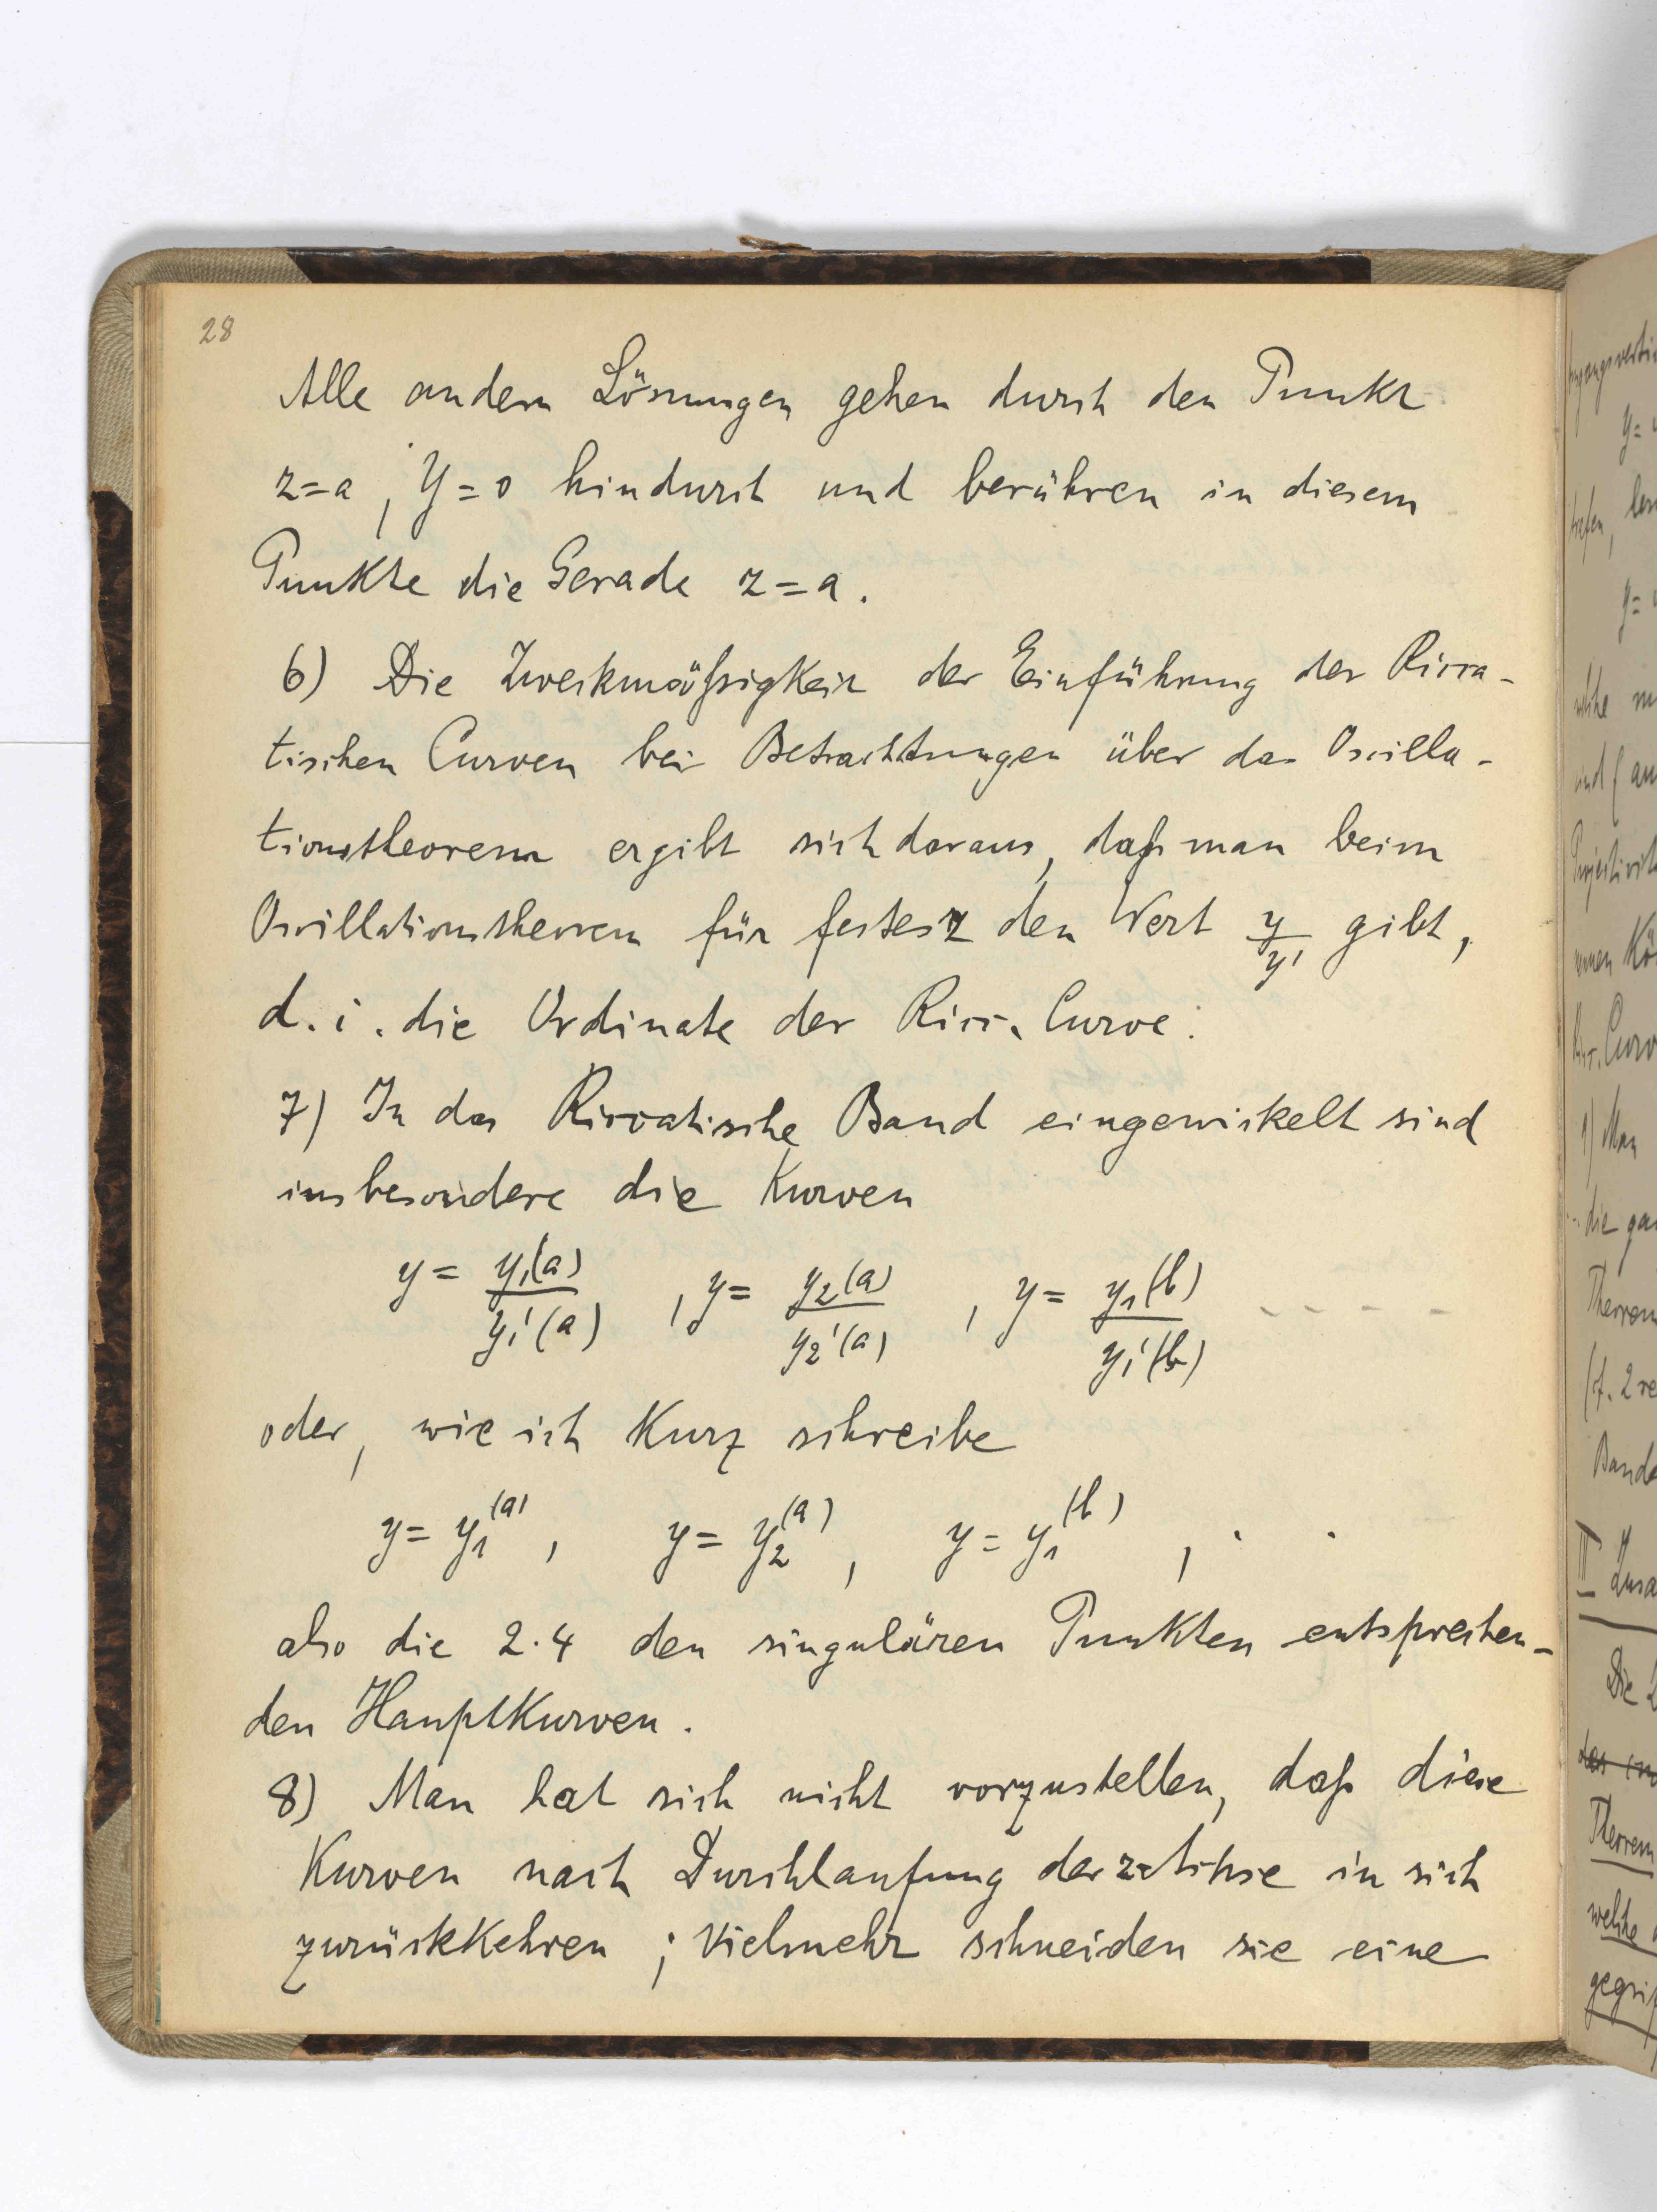 28
Alle andern Lösungen gehen durch den Punkt
z=a, Y=0 hindurch und berühren in diesem
Punkte die Gerade z=a.
6) Die Zweckmäßigkeit der Einführung der Ricca-
tischen Curven bei Betrachtungen über das Oscilla-
tionstheorem ergibt sich daraus, daß man beim
Oscillationstheorem für festes z den Wert y/y' gibt,
d. i. die Ordinate der Ricc. Curve.
7) In das Riccatische Band eingewickelt sind
insbesondere die Kurven
y = y₁(a)/y₁'(a) , y = y₂(a)/y₂'(a) , y = y₁(b)/y₁'(b) - - - - -
oder, wie ich kurz schreibe
y = y₁⁽ᵃ⁾, y = y₂⁽ᵃ⁾, y = y₁⁽ᵇ⁾, . .
also die 2·4 den singulären Punkten entsprechen-
den Hauptkurven.
8) Man hat sich nicht vorzustellen, daß diese
Kurven nach Durchlaufung der z-Achse in sich
zurückkehren ; vielmehr schneiden sie eine